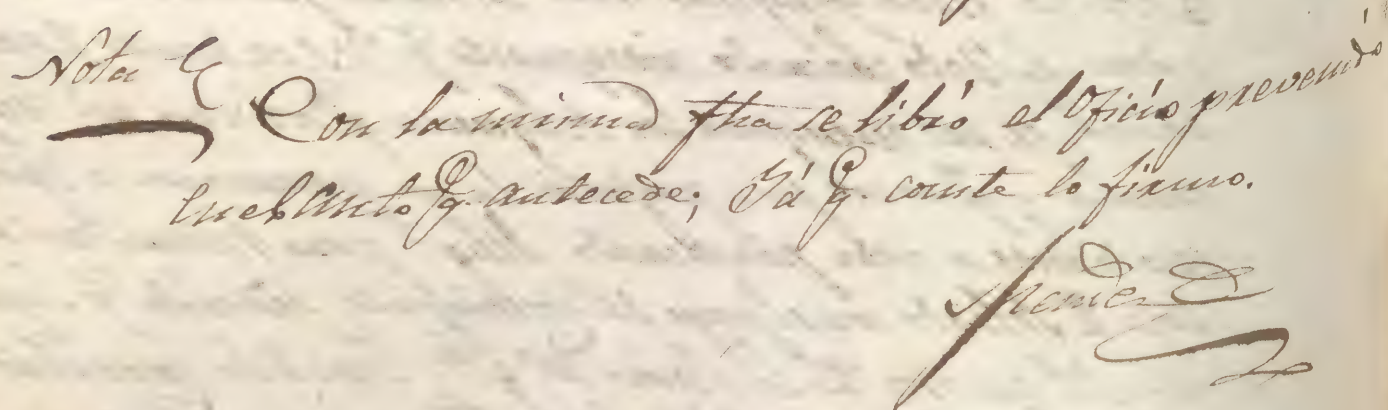 Nota
Con la misma fha se libró el Oficio prevenido
en el Auto q. antecede; Yá q. conste lo firmo.
Mendez